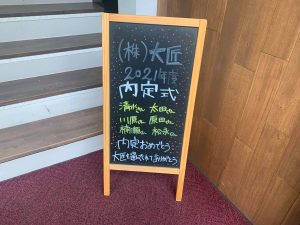 (株)大匠
2021年度
内定式
清水さん 太田さん
川原さん 原田さん
楠瀬さん 松永さん
内定おめでとう
大匠を選んでくれてありがとう